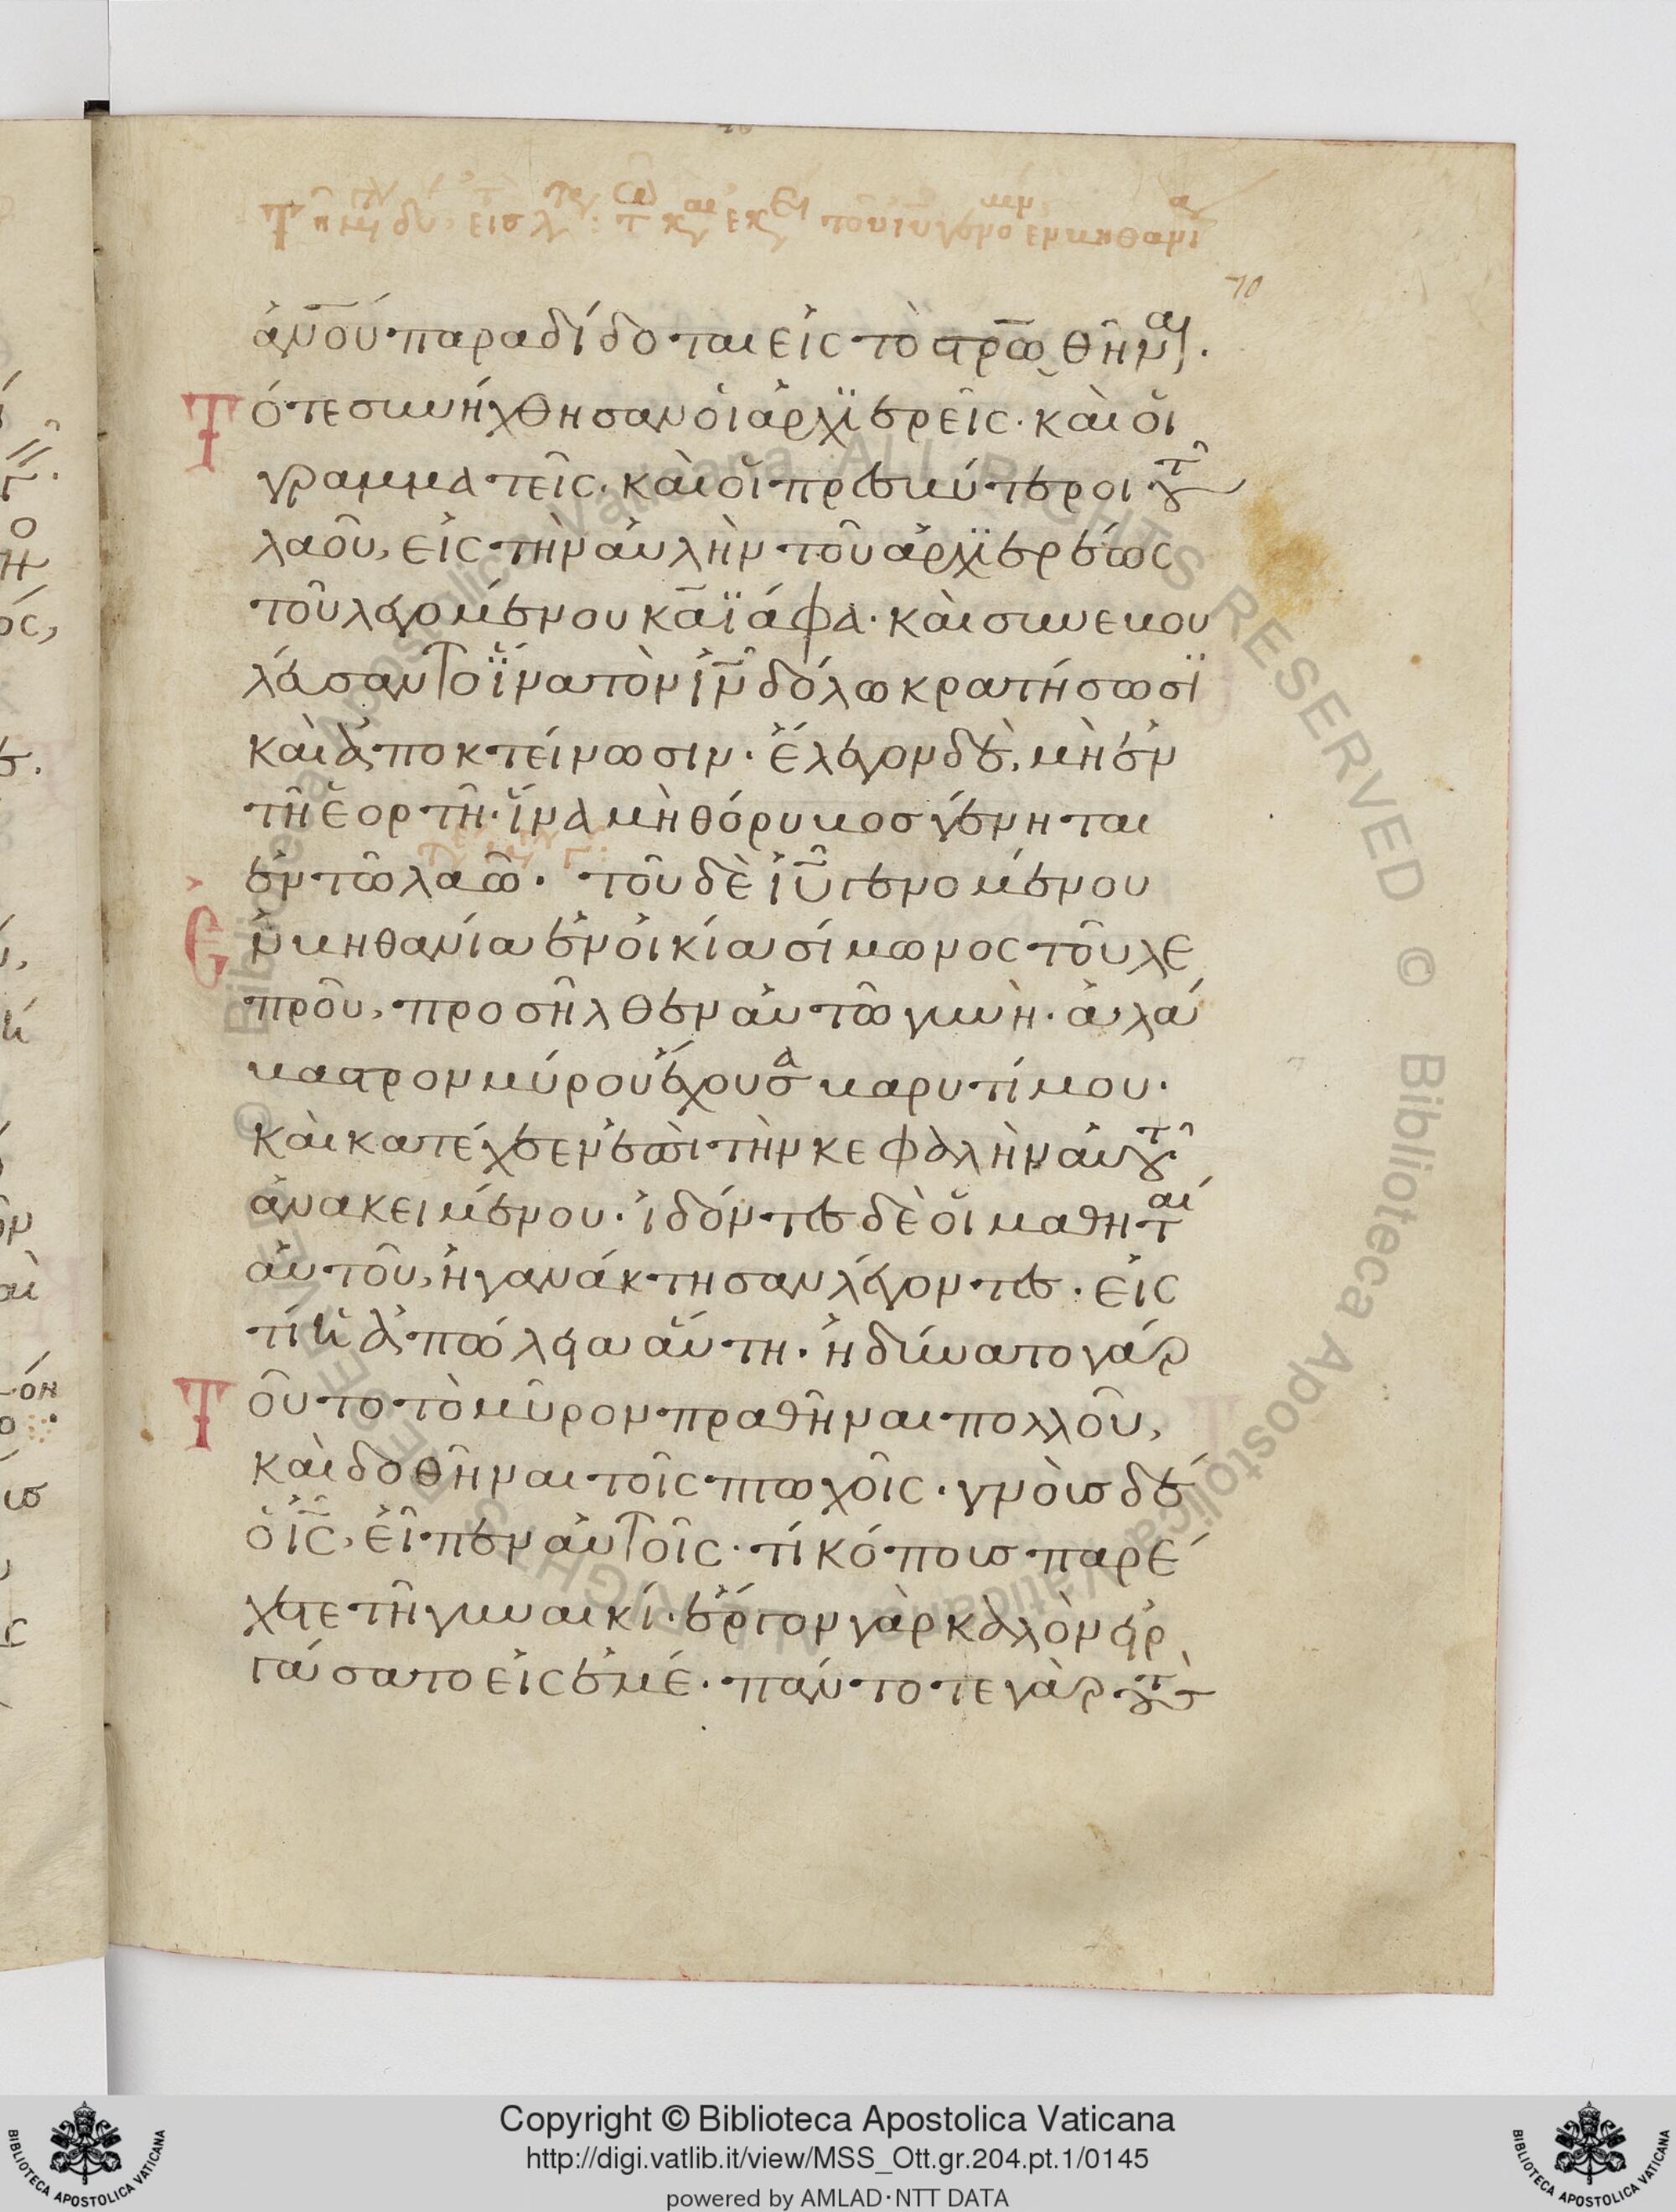 70
ἀν̅ο̅υ̅ παραδίδοται εἰς τὸ στρ̅ω̅θῆναι.
Τότε συνήχθησαν οἱ ἀρχϊερεῖς· καὶ οἱ
γραμματεῖς· καὶ οἱ πρεσβύτεροι τοῦ
λαοῦ, εἰς τὴν αὐλὴν τοῦ ἀρχϊερέως
τοῦ λεγομένου καϊάφα· καὶ συνεβου
λεύσαντο ἵνα τὸν ἰν̅ δόλω κρατήσωσϊ
καὶ ἀποκτείνωσιν· ἔλεγον δέ, μὴ ἐν
τῆ ἑορτῆ· ἵνα μὴ θόρυβος γένηται
ἐν τῶ λαῶ· τοῦ δὲ ἰυ̅ γενομένου
Ἐν βηθανία ἐν οἰκία σίμωνος τοῦ λε
προῦ, προσῆλθεν αὐτῶ γυνὴ· ἀλά
βαστρον μύρου ἔχουσα βαρυτίμου·
καὶ κατέχεεν ἐπὶ τὴν κεφαλὴν αὐτοῦ
ἀνακειμένου· ἰδόντες δὲ οἱ μαθηταί
αὐτοῦ, ἠγανάκτησαν λέγοντες· εἰς
τί ἡ ἀπώλεια αὕτη· ἠδύνατο γάρ
Τοῦτο τὸ μῦρον πραθῆναι πολλοῦ,
καὶ δοθῆναι τοῖς πτωχοῖς· γνοὺς δέ
ὁ ἰς̅, εἶπεν αὐτοῖς· τί κόπους παρέ
χετε τῆ γυναικί· ἔργον γὰρ καλὸν εἰρ
γάσατο εἰς ἐμέ· πάντοτε γὰρ τοὺσ
Copyright © Biblioteca Apostolica Vaticana
http://digi.vatlib.it/view/MSS_Ott.gr.204.pt.1/0145
powered by AMLAD·NTT DATA
BIBLIOTECA APOSTOLICA VATICANA
BIBLIOTECA APOSTOLICA VATICANA